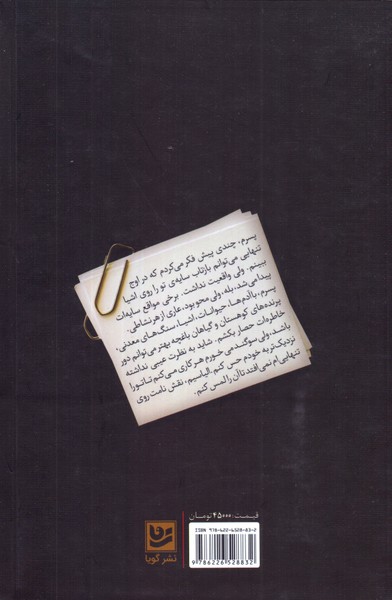 پسرم، چندی پیش فکر می‌کردم که در اوج
تنهایی می‌توانم بازتاب سایه‌ی تو را روی اشیا
ببینم. ولی واقعیت نداشت. برخی مواقع سایه‌ات
پیدا می‌شد، بله، ولی محو بود، عاری از هر نشاطی.
پسرم، با آدم‌ها، حیوانات، اشیا، سنگ‌های معدنی،
پرنده‌های کوهستان و گیاهان باغچه بهتر می‌توانم دور
خاطرات حصار بکشم. شاید به نظرت عیبی نداشته
باشد، ولی سوگند می‌خورم هر کاری می‌کنم تا تو را
نزدیک‌تر به خودم حس کنم. الیاسیم، نقش نامت روی
تنهایی‌ام نمی‌افتد تا آن را لمس کنم.
قیمت: ۴۵۰۰۰ تومان
ISBN 978-622-6528-83-2
9 786226 528832
نشر گویا